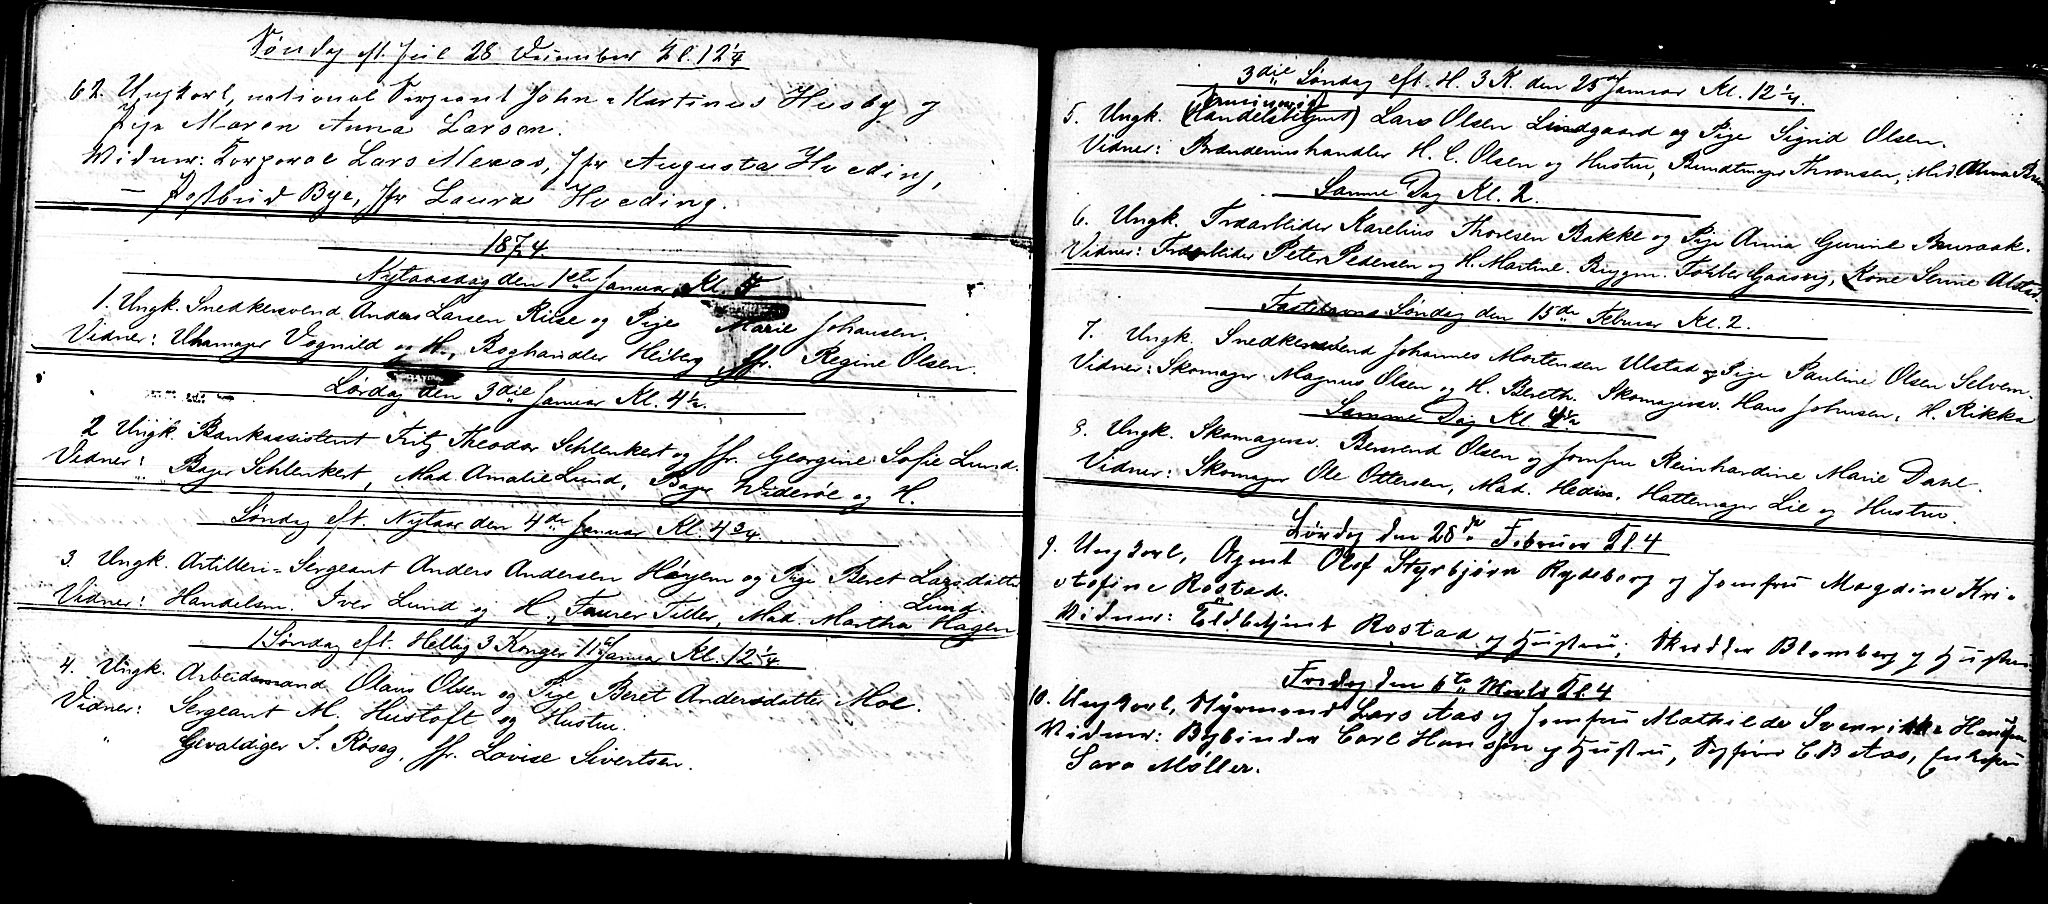 Søndag eft. Jul 28 December Kl. 12 1/4
62. Ungkarl, national Sergeant John Martinus Husby og
Pige Maren Anna Larsen.
Vidner: Corporal Lars Nexaas, Jfr Augusta Hveding,
— Postbud Bye, Jfr Laura Hveding.
1874.
Nytaarsdag den 1ste Januar Kl.
1. Ungk. Snedkersvend Anders Larsen Riise og Pige Marie Johansen.
Vidner: Uhrmager Vognild og H., Boghandler Heiberg, Jfr. Regine Olsen.
Lørdag den 3die Januar Kl. 4 1/2.
2 Ungk. Bankassistent Fritz Theodor Schlenkert og Jfr. Georgine Sofie Lund.
Vidner: Bager Schlenkert, Mad. Amalie Lund, Bager Widerøe og H.
Søndag eft. Nytaar den 4de Januar Kl. 4 3/4.
3. Ungk. Artilleri-Sergeant Anders Andersen Høyem og Pige Beret Larsdatter
Lund.
Vidner: Handelsm. Iver Lund og H., Faurer Tiller, Mad. Martha Hagen
1 Søndag eft. Hellig 3 Konger 11te Januar Kl. 12 1/4
4. Ungk. Arbeidsmand Olaus Olsen og Pige Beret Andersdatter Moe.
Vidner: Sergeant M. Hustoft og Hustru.
" Gevaldiger I. Røseg, Jfr. Lovise Sivertsen.
3die Søndag eft. H. 3 K. den 25de Januar Kl. 12 1/4.
5. Ungk. (Handelsbetjent) Lars Olsen Lindgaard og Pige Sigrid Olsen.
Vidner: Brændeviinshandler H. C. Olsen og Hustru, Bundtmager Thronsen, Mad. Olava
Samme Dag Kl. 2.
6. Ungk. Træarbeider Karelius Thoresen Bakke og Pige Anna Gurine Buraak.
Vidner: Træarbeider Peter Pedersen og H. Martine. Bryggm. Tobber Gaasvig, Kone Serine Alstad.
Fastelavns Søndag den 15de Februar Kl. 2.
7. Ungk. Snedkersvend Johannes Mortensen Ulstad og Pige Pauline Olsen Selvem.
Vidner: Skomager Magnus Olsen og H. Bereth. Skomagersv. Hans Johnsen, H. Rikka
Samme Dag Kl. 4 1/2
8. Ungk. Skomagersv. Bernvend Olsen og Jomfru Reinhardine Marie Dahl.
Vidner: Skomager Ole Ottersen, Mad. Hedin, Hattemager Lie og Hustru.
Lørdag den 28de Februar Kl. 4
9. Ungkarl, Agent Olof Styrbjørn Rydeborg og Jomfru Magdine Kri-
stofine Rostad.
Vidner: Toldbetjent Rostad og Hustru, Skrædder Blomberg og Hustru
Fredag den 6te Marts Kl. 4
10. Ungkarl, Styrmand Lars Aas og Jomfru Mathilde Sverrikke Hansen
Vidner: Bogbinder Carl Hansen og Hustru, C B Aas, Enkefru
Sara Møller.